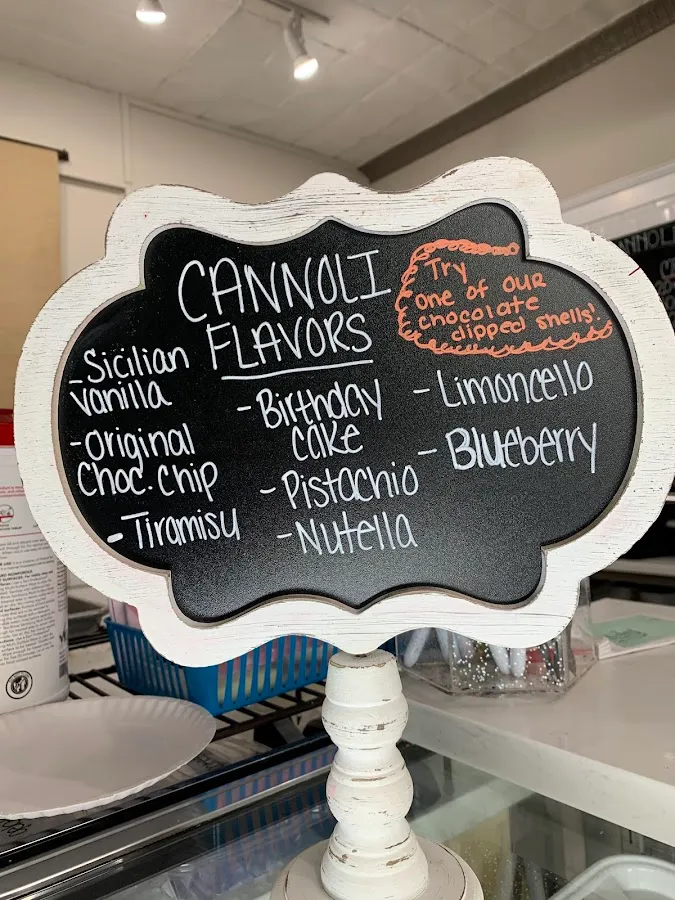 CANNOLI
FLAVORS
Try
one of our
chocolate
dipped shells!
-Sicilian
vanilla
-Original
Choc. chip
-Tiramisu
-Birthday
cake
-Pistachio
-Nutella
-Limoncello
-Blueberry